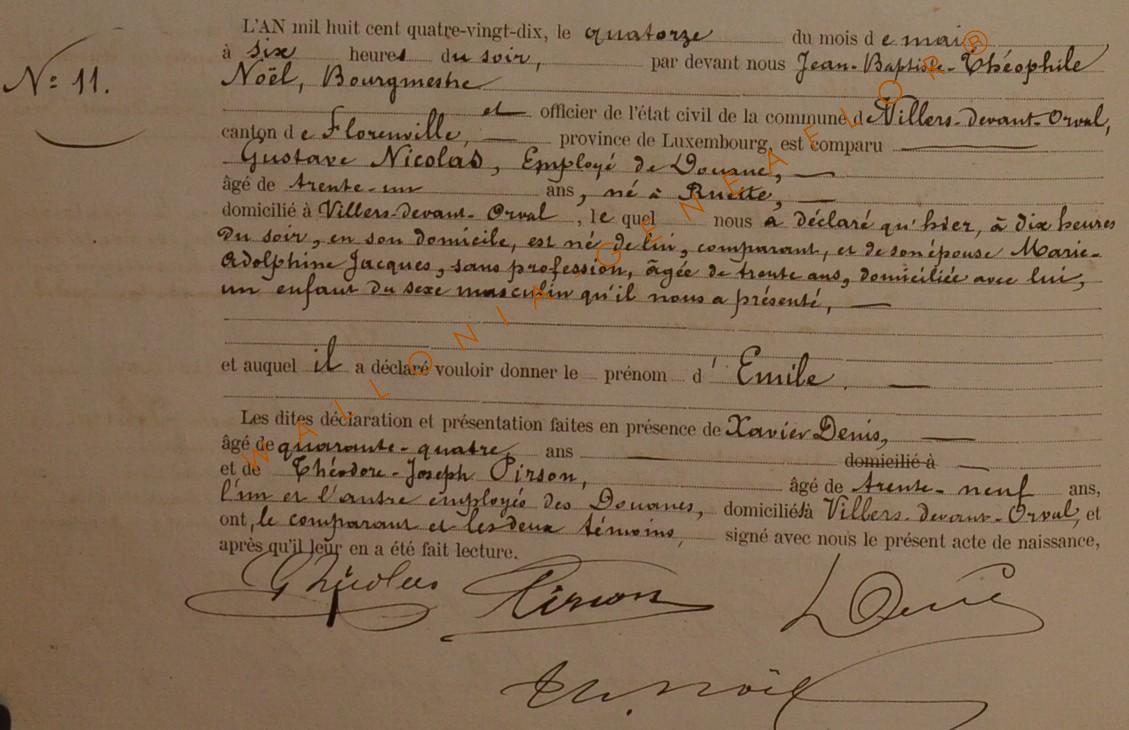 L'AN mil huit cent quatre-vingt-dix, le quatorze du mois de mai
à six heures du soir, par devant nous Jean-Baptiste-Théophile
Noël, Bourgmestre
N° 11.
et officier de l'état civil de la commune de Villers-devant-Orval,
canton de Florenville, province de Luxembourg, est comparu
Gustave Nicolas, Employé de Douane,
âgé de trente-un ans, né à Ruette,
domicilié à Villers-devant-Orval, lequel nous a déclaré qu'hier, à dix heures
du soir, en son domicile, est né de lui, comparant, et de son épouse Marie-
Adolphine Jacques, sans profession, âgée de trente ans, domiciliée avec lui,
un enfant du sexe masculin qu'il nous a présenté,
et auquel il a déclaré vouloir donner le prénom d'Emile.
Les dites déclaration et présentation faites en présence de Xavier Denis,
âgé de quarante-quatre ans domicilié à
et de Théodore-Joseph Pirson, âgé de trente-neuf ans,
l'un et l'autre employés des Douanes, domiciliés à Villers-devant-Orval, et
ont, le comparant et les deux témoins, signé avec nous le présent acte de naissance,
après qu'il leur en a été fait lecture.
G Nicolas Pirson Denis
Th. Noël
WALLONIA GENEALOR®